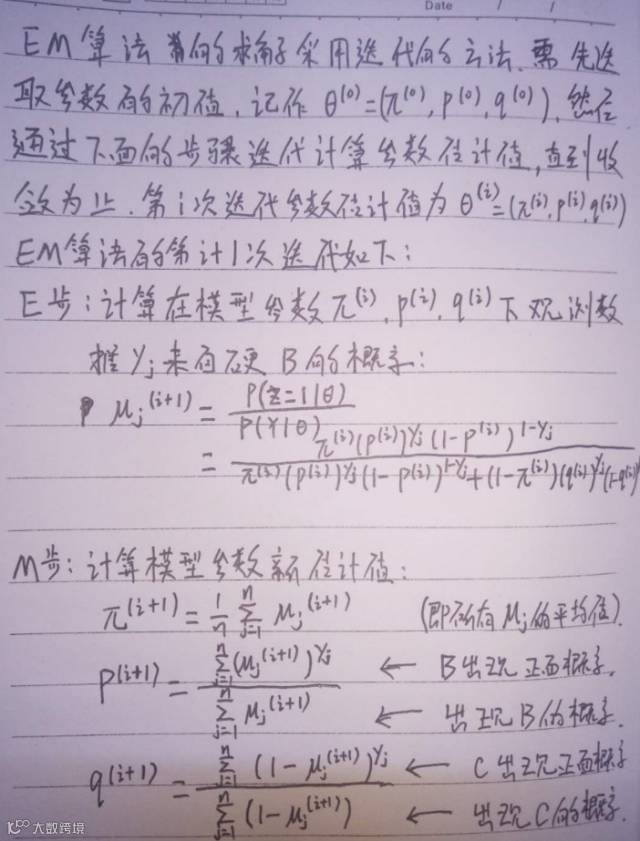 Date / /
EM算法的求解采用迭代的方法,需先选
取参数的初值,记作 θ⁽⁰⁾=(π⁽⁰⁾, p⁽⁰⁾, q⁽⁰⁾),然后
通过下面的步骤迭代计算参数估计值,直到收
敛为止.第i次迭代参数估计值为 θ⁽ⁱ⁾=(π⁽ⁱ⁾, p⁽ⁱ⁾, q⁽ⁱ⁾)
EM算法的第i+1次迭代如下:
E步:计算在模型参数π⁽ⁱ⁾, p⁽ⁱ⁾, q⁽ⁱ⁾下观测数
据 yⱼ 来自硬 B 的概率:
μⱼ⁽ⁱ⁺¹⁾ = P(z=1|θ) / P(Y|θ)
= π⁽ⁱ⁾(p⁽ⁱ⁾)^yⱼ (1-p⁽ⁱ⁾)^1-yⱼ / π⁽ⁱ⁾(p⁽ⁱ⁾)^yⱼ (1-p⁽ⁱ⁾)^1-yⱼ + (1-π⁽ⁱ⁾)(q⁽ⁱ⁾)^yⱼ (1-q⁽ⁱ⁾)
M步:计算模型参数新估计值:
π⁽ⁱ⁺¹⁾ = 1/n Σⱼ₌₁ⁿ μⱼ⁽ⁱ⁺¹⁾ (即所有 μⱼ 的平均值).
p⁽ⁱ⁺¹⁾ = Σⱼ₌₁ⁿ (μⱼ⁽ⁱ⁺¹⁾)^yⱼ / Σⱼ₌₁ⁿ μⱼ⁽ⁱ⁺¹⁾ ← B出现正面概率.
← 出现B的概率.
q⁽ⁱ⁺¹⁾ = Σⱼ₌₁ⁿ (1-μⱼ⁽ⁱ⁺¹⁾)^yⱼ / Σⱼ₌₁ⁿ (1-μⱼ⁽ⁱ⁺¹⁾) ← C出现正面概率
← 出现C的概率.
大数跨境